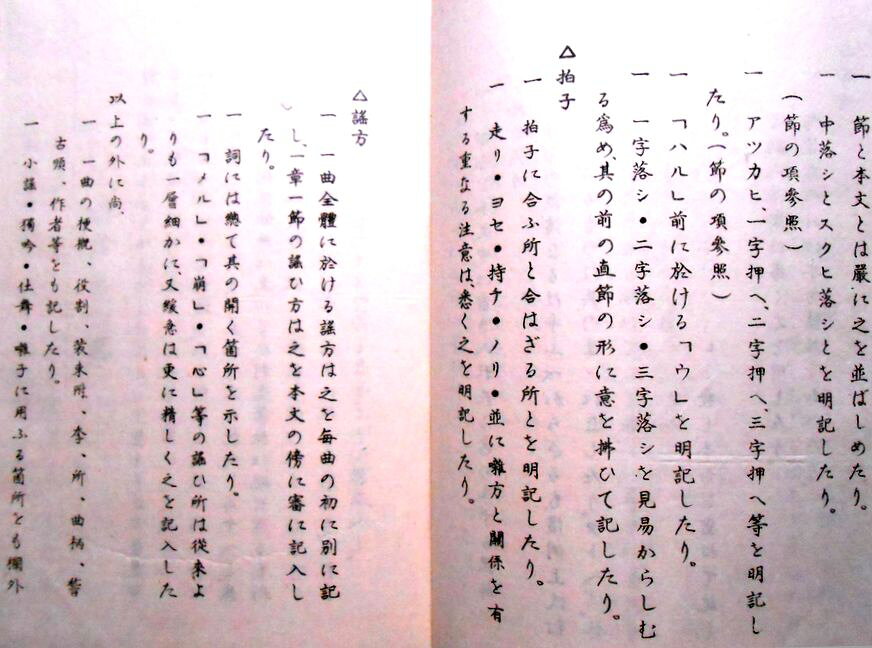 一 節と本文とは嚴に之を並ばしめたり。
一 中落シとスクヒ落シとを明記したり。
(節の項參照)
一 アツカヒ、一字押ヘ、二字押ヘ、三字押ヘ等を明記し
たり。(節の項參照)
一 「ハル」前に於ける「ウ」を明記したり。
一 一字落シ・二字落シ・三字落シを見易からしむ
る爲め、其の前の直節の形に意を拂ひて記したり。
△拍子
一 拍子に合ふ所と合はざる所とを明記したり。
一 走リ・ヨセ・持チ・ノリ・並に囃方と關係を有
する重なる注意は、悉く之を明記したり。
△謠方
一 一曲全體に於ける謠方は之を每曲の初に別に記
し、一章一節の謠ひ方は之を本文の傍に審に記入し
たり。
一 詞には總て其の開く箇所を示したり。
一 「メル」・「崩」・「心」等の謠ひ所は從來よ
りも一層細かに、又緩急は更に精しく之を記入した
り。
以上の外に尚、
一 一曲の梗概、役割、裝束附、季、所、曲柄、
古頭、作者等をも記したり。
一 小謠・獨吟・仕舞・囃子に用ふる箇所をも欄外